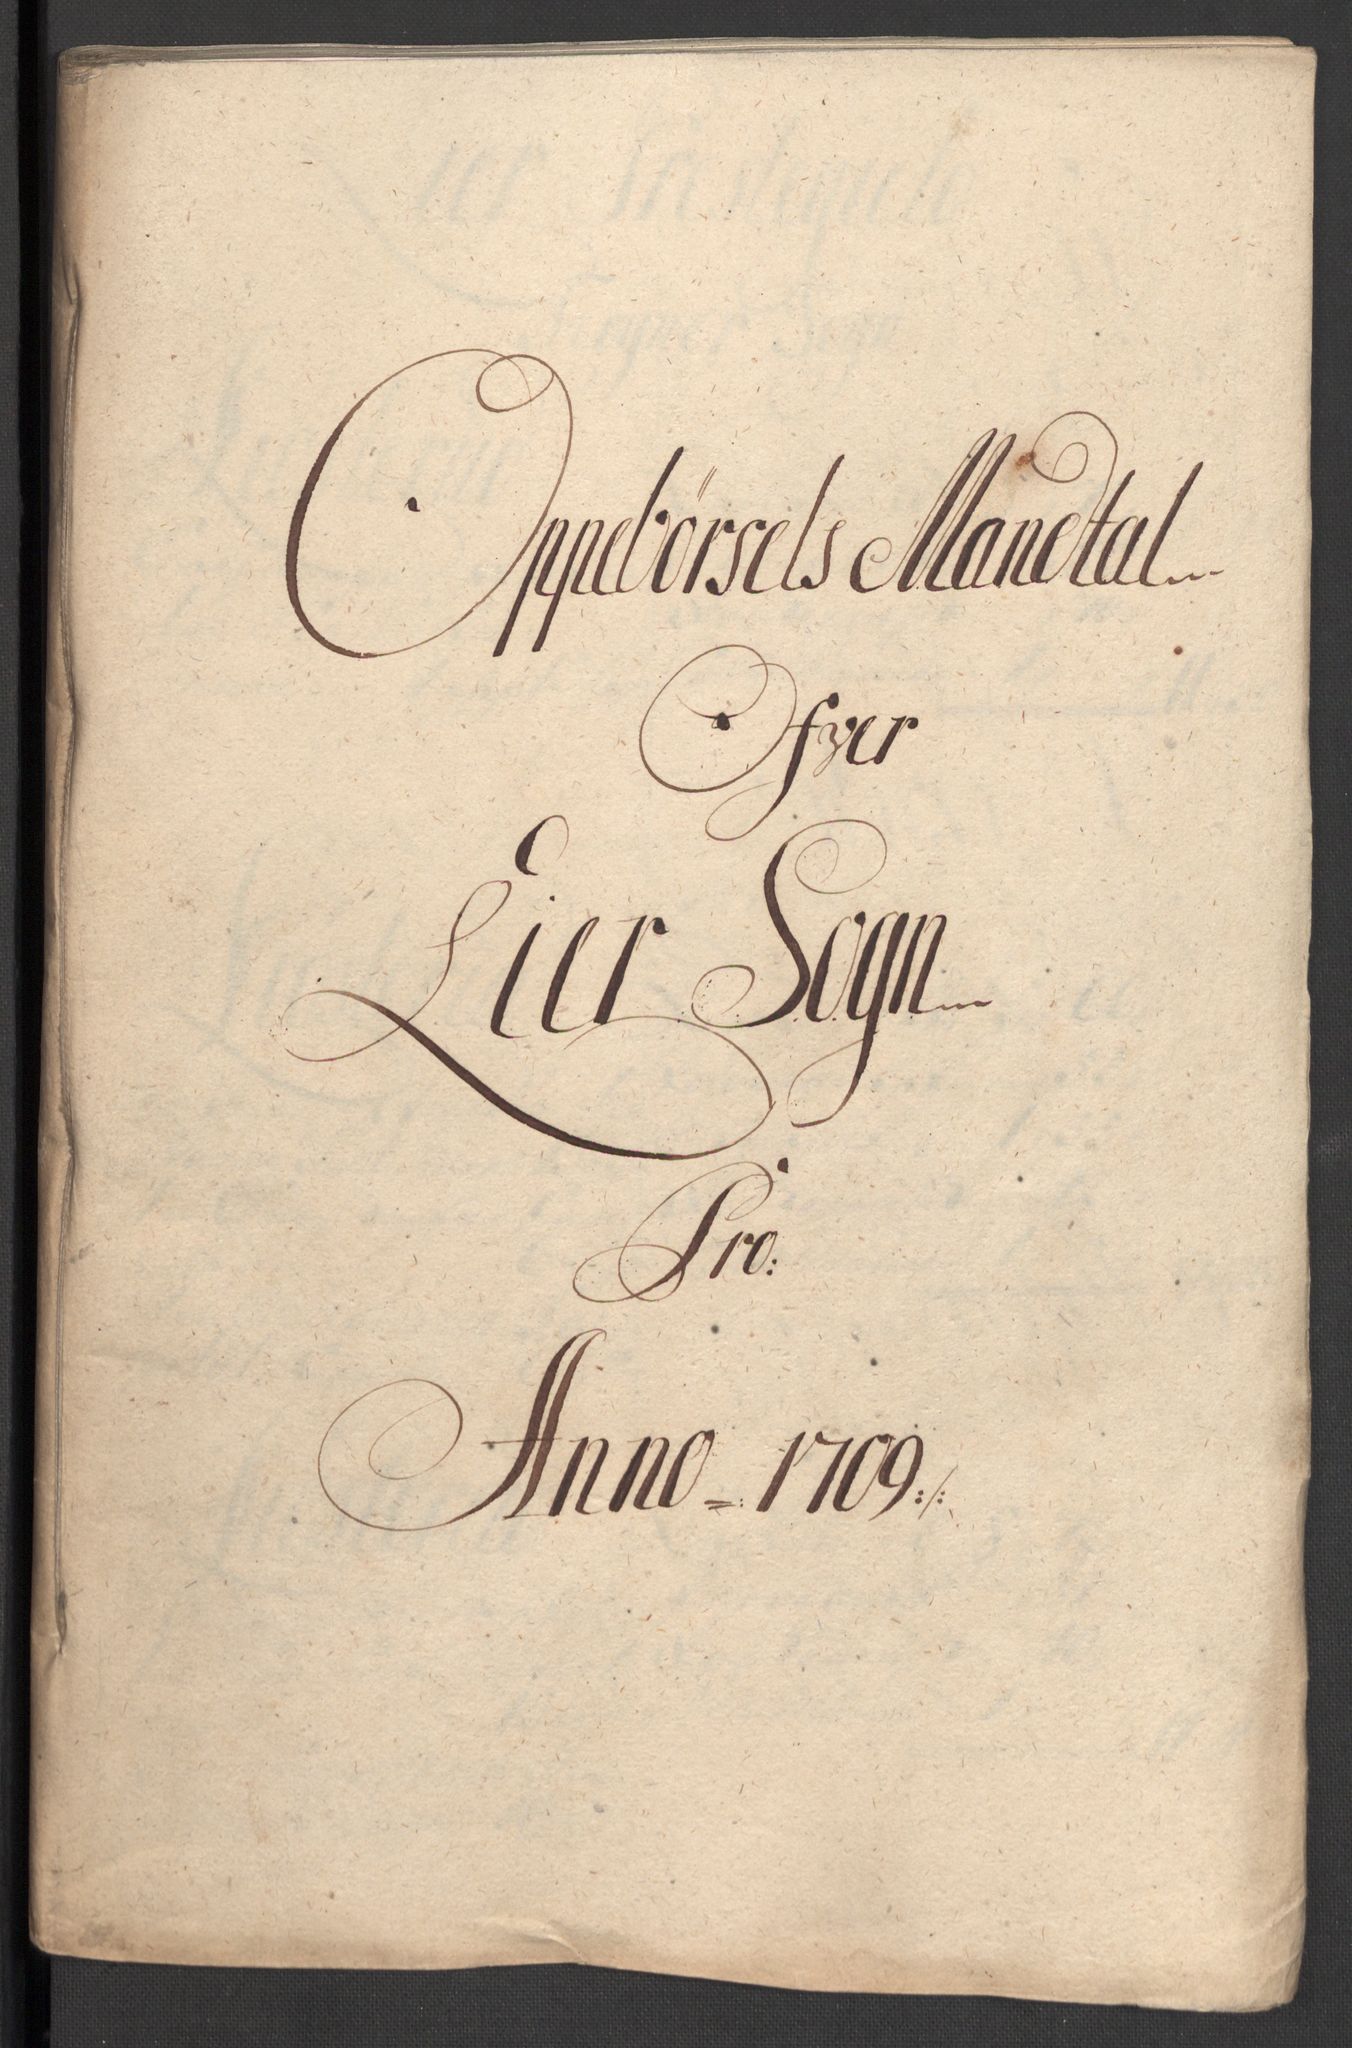 Oppebörsels Mandtal
Ofver
Eier Sogn
Pro:
Anno = 1709 :/: